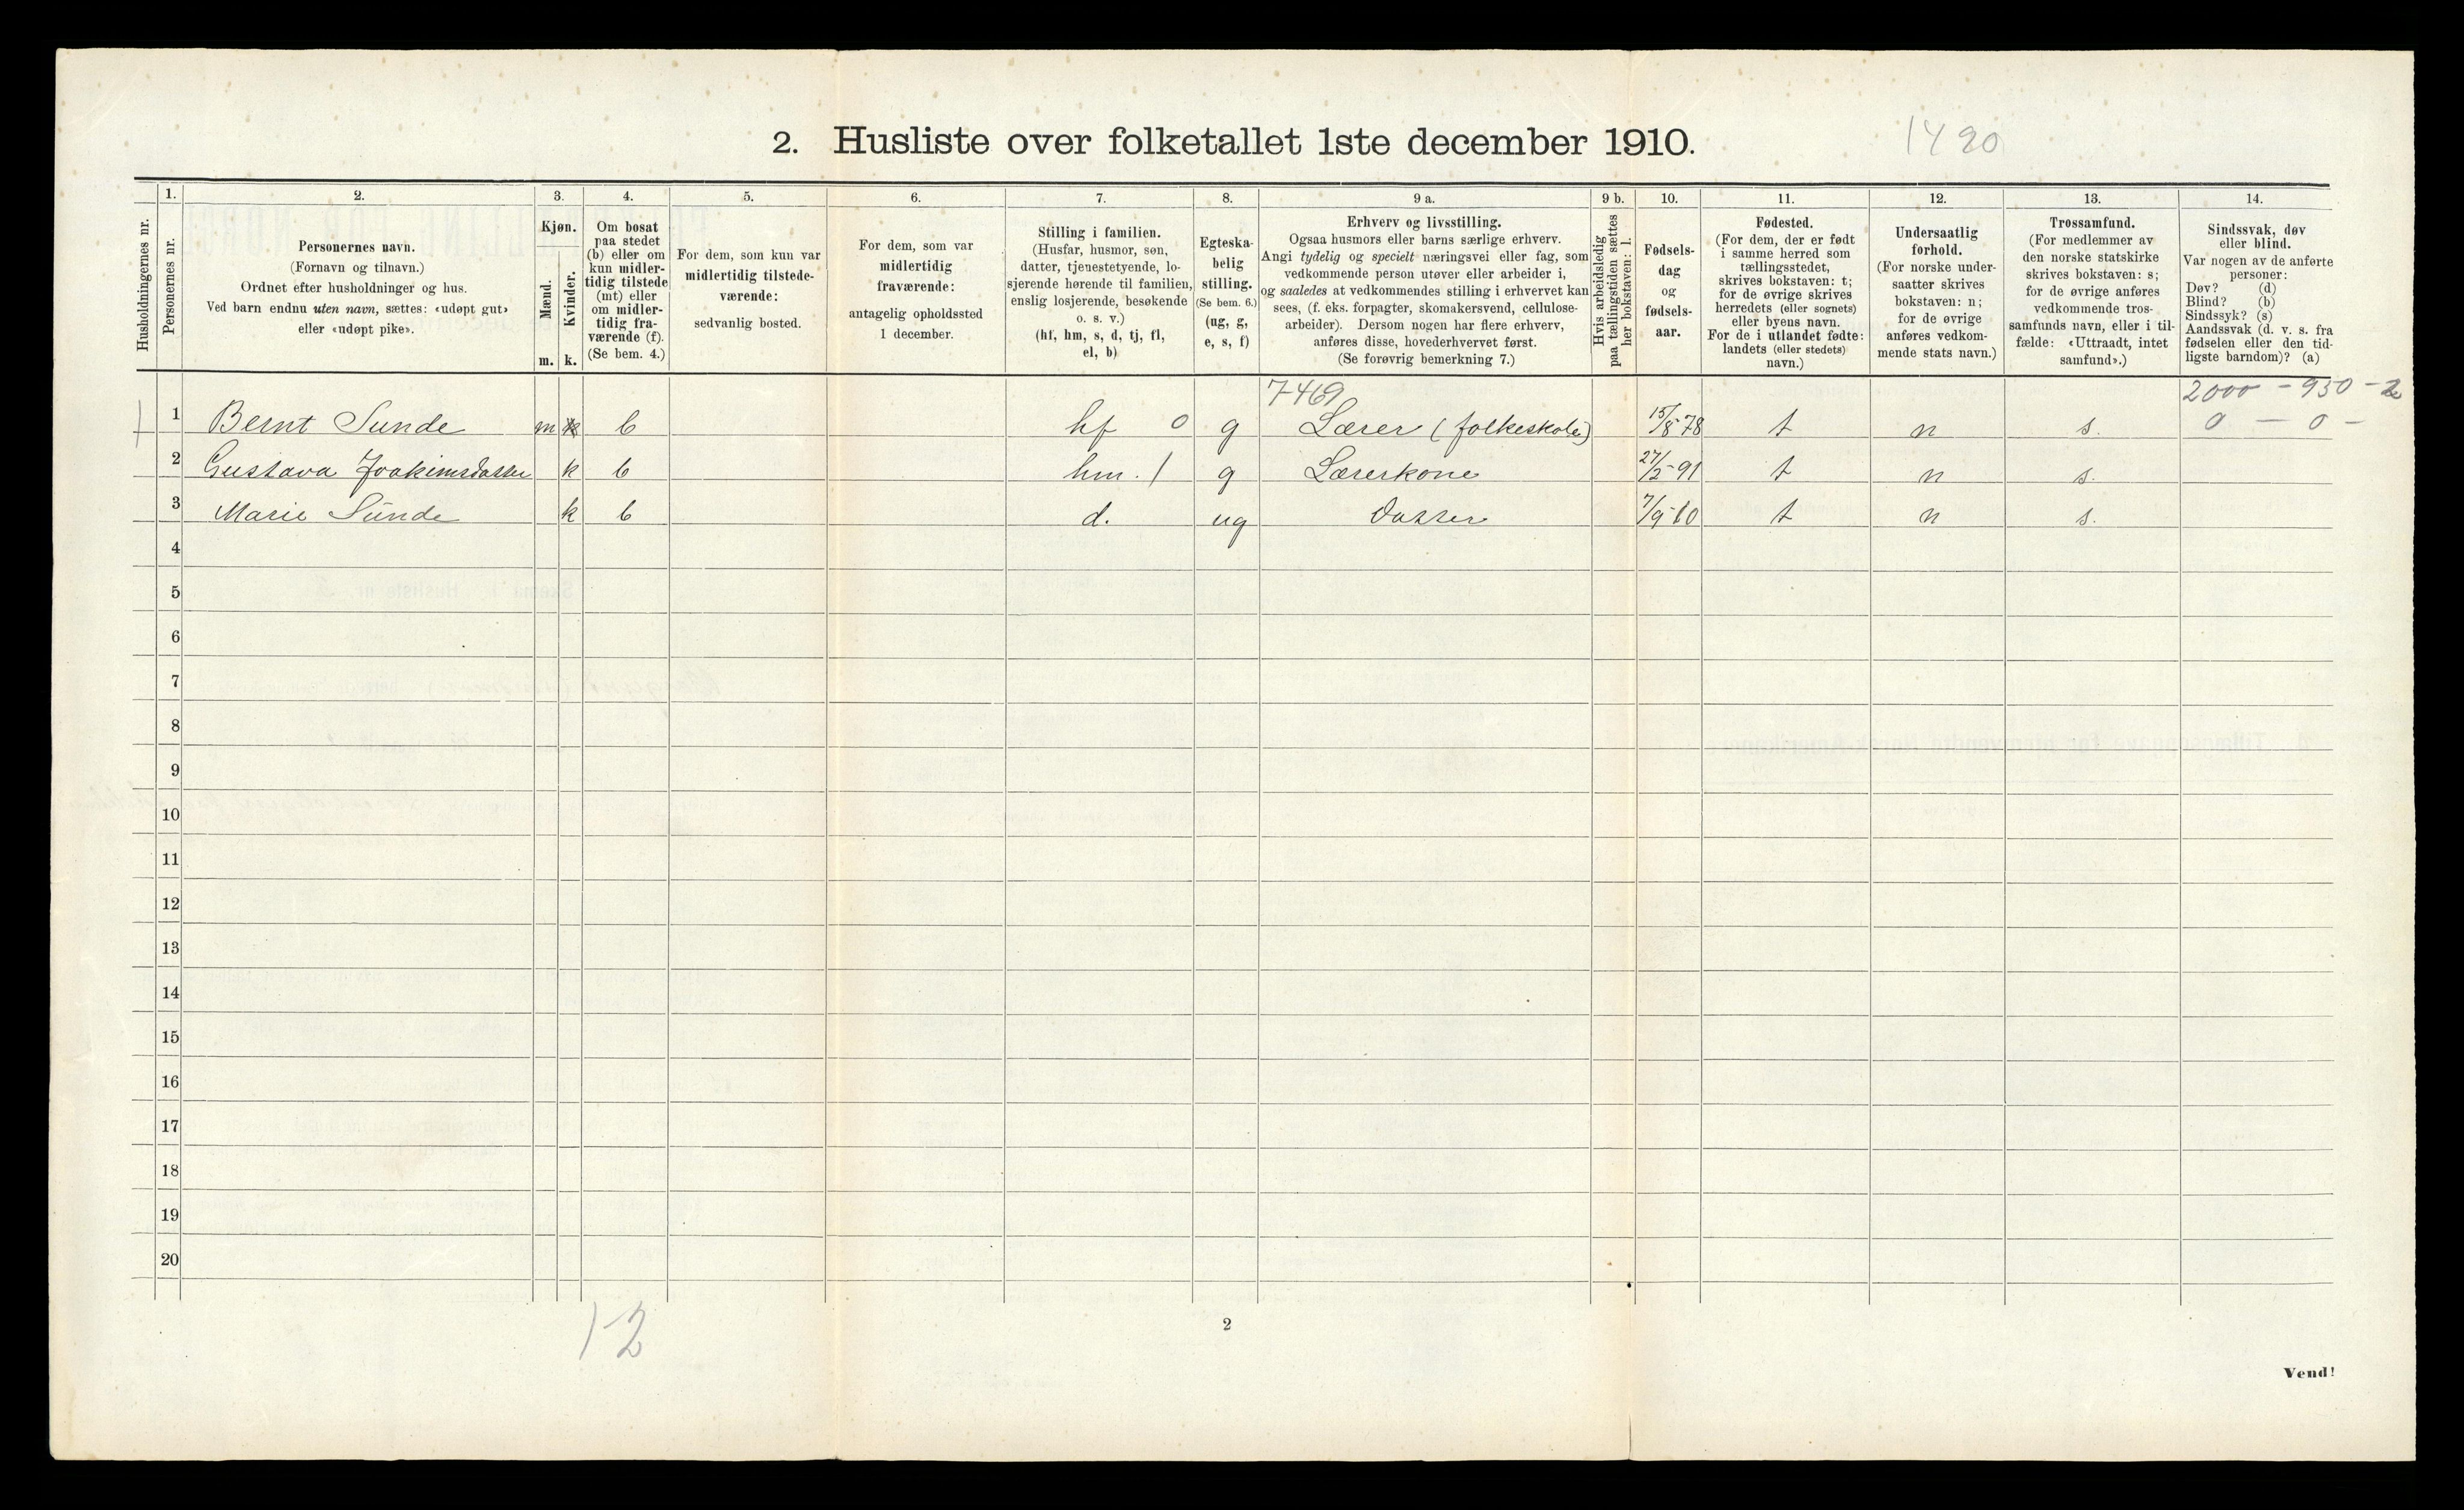 2. Husliste over folketallet 1ste december 1910.
1490
Husholdningernes nr.
1.
Personernes nr.
2.
Personernes navn.
(Fornavn og tilnavn.)
Ordnet efter husholdninger og hus.
Ved barn endnu uten navn, sættes: «udøpt gut»
eller «udøpt pike».
3.
Kjøn.
Mænd.
Kvinder.
m. k.
4.
Om bosat
paa stedet
(b) eller om
kun midler-
tidig tilstede
(mt) eller
om midler-
tidig fra-
værende (f).
(Se bem. 4.)
5.
For dem, som kun var
midlertidig tilstede-
værende:
sedvanlig bosted.
6.
For dem, som var
midlertidig
fraværende:
antagelig opholdssted
1 december.
7.
Stilling i familien.
(Husfar, husmor, søn,
datter, tjenestetyende, lo-
sjerende hørende til familien,
enslig losjerende, besøkende
o. s. v.)
(hf, hm, s, d, tj, fl,
el, b)
8.
Egteska-
belig
stilling.
(Se bem. 6.)
(ug, g,
e, s, f)
9 a.
Erhverv og livsstilling.
Ogsaa husmors eller barns særlige erhverv.
Angi tydelig og specielt næringsvei eller fag, som
vedkommende person utøver eller arbeider i,
og saaledes at vedkommendes stilling i erhvervet kan
sees, (f. eks. forpagter, skomakersvend, cellulose-
arbeider). Dersom nogen har flere erhverv,
anføres disse, hovederhvervet først.
(Se forøvrig bemerkning 7.)
9 b.
Hvis arbeidsledig
paa tællingstiden sættes
her bokstaven: l.
10.
Fødsels-
dag
og
fødsels-
aar.
11.
Fødested.
(For dem, der er født
i samme herred som
tællingsstedet,
skrives bokstaven: t;
for de øvrige skrives
herredets (eller sognets)
eller byens navn.
For de i utlandet fødte:
landets (eller stedets)
navn.)
12.
Undersaatlig
forhold.
(For norske under-
saatter skrives
bokstaven: n;
for de øvrige
anføres vedkom-
mende stats navn.)
13.
Trossamfund.
(For medlemmer av
den norske statskirke
skrives bokstaven: s;
for de øvrige anføres
vedkommende tros-
samfunds navn, eller i til-
fælde: «Uttraadt, intet
samfund».)
14.
Sindssvak, døv
eller blind.
Var nogen av de anførte
personer:
Døv? (d)
Blind? (b)
Sindssyk? (s)
Aandssvak (d. v. s. fra
fødselen eller den tid-
ligste barndom)? (a)
7469 2000 - 950 - 2
1 Bernt Sunde m k b hf 0 g Lærer (folkeskole) 15/8 78 t n s. 0 - 0 -
2 Gustava Joakimsdatter k b hm. 1 g Lærerkone 27/5-91 t n s.
3 Marie Sunde k b d. ug Datter 7/9-10 t n s.
4
5
6
7
8
9
10
11
12
13
14
15
16
17
18
19
20
1-2
2
Vend!